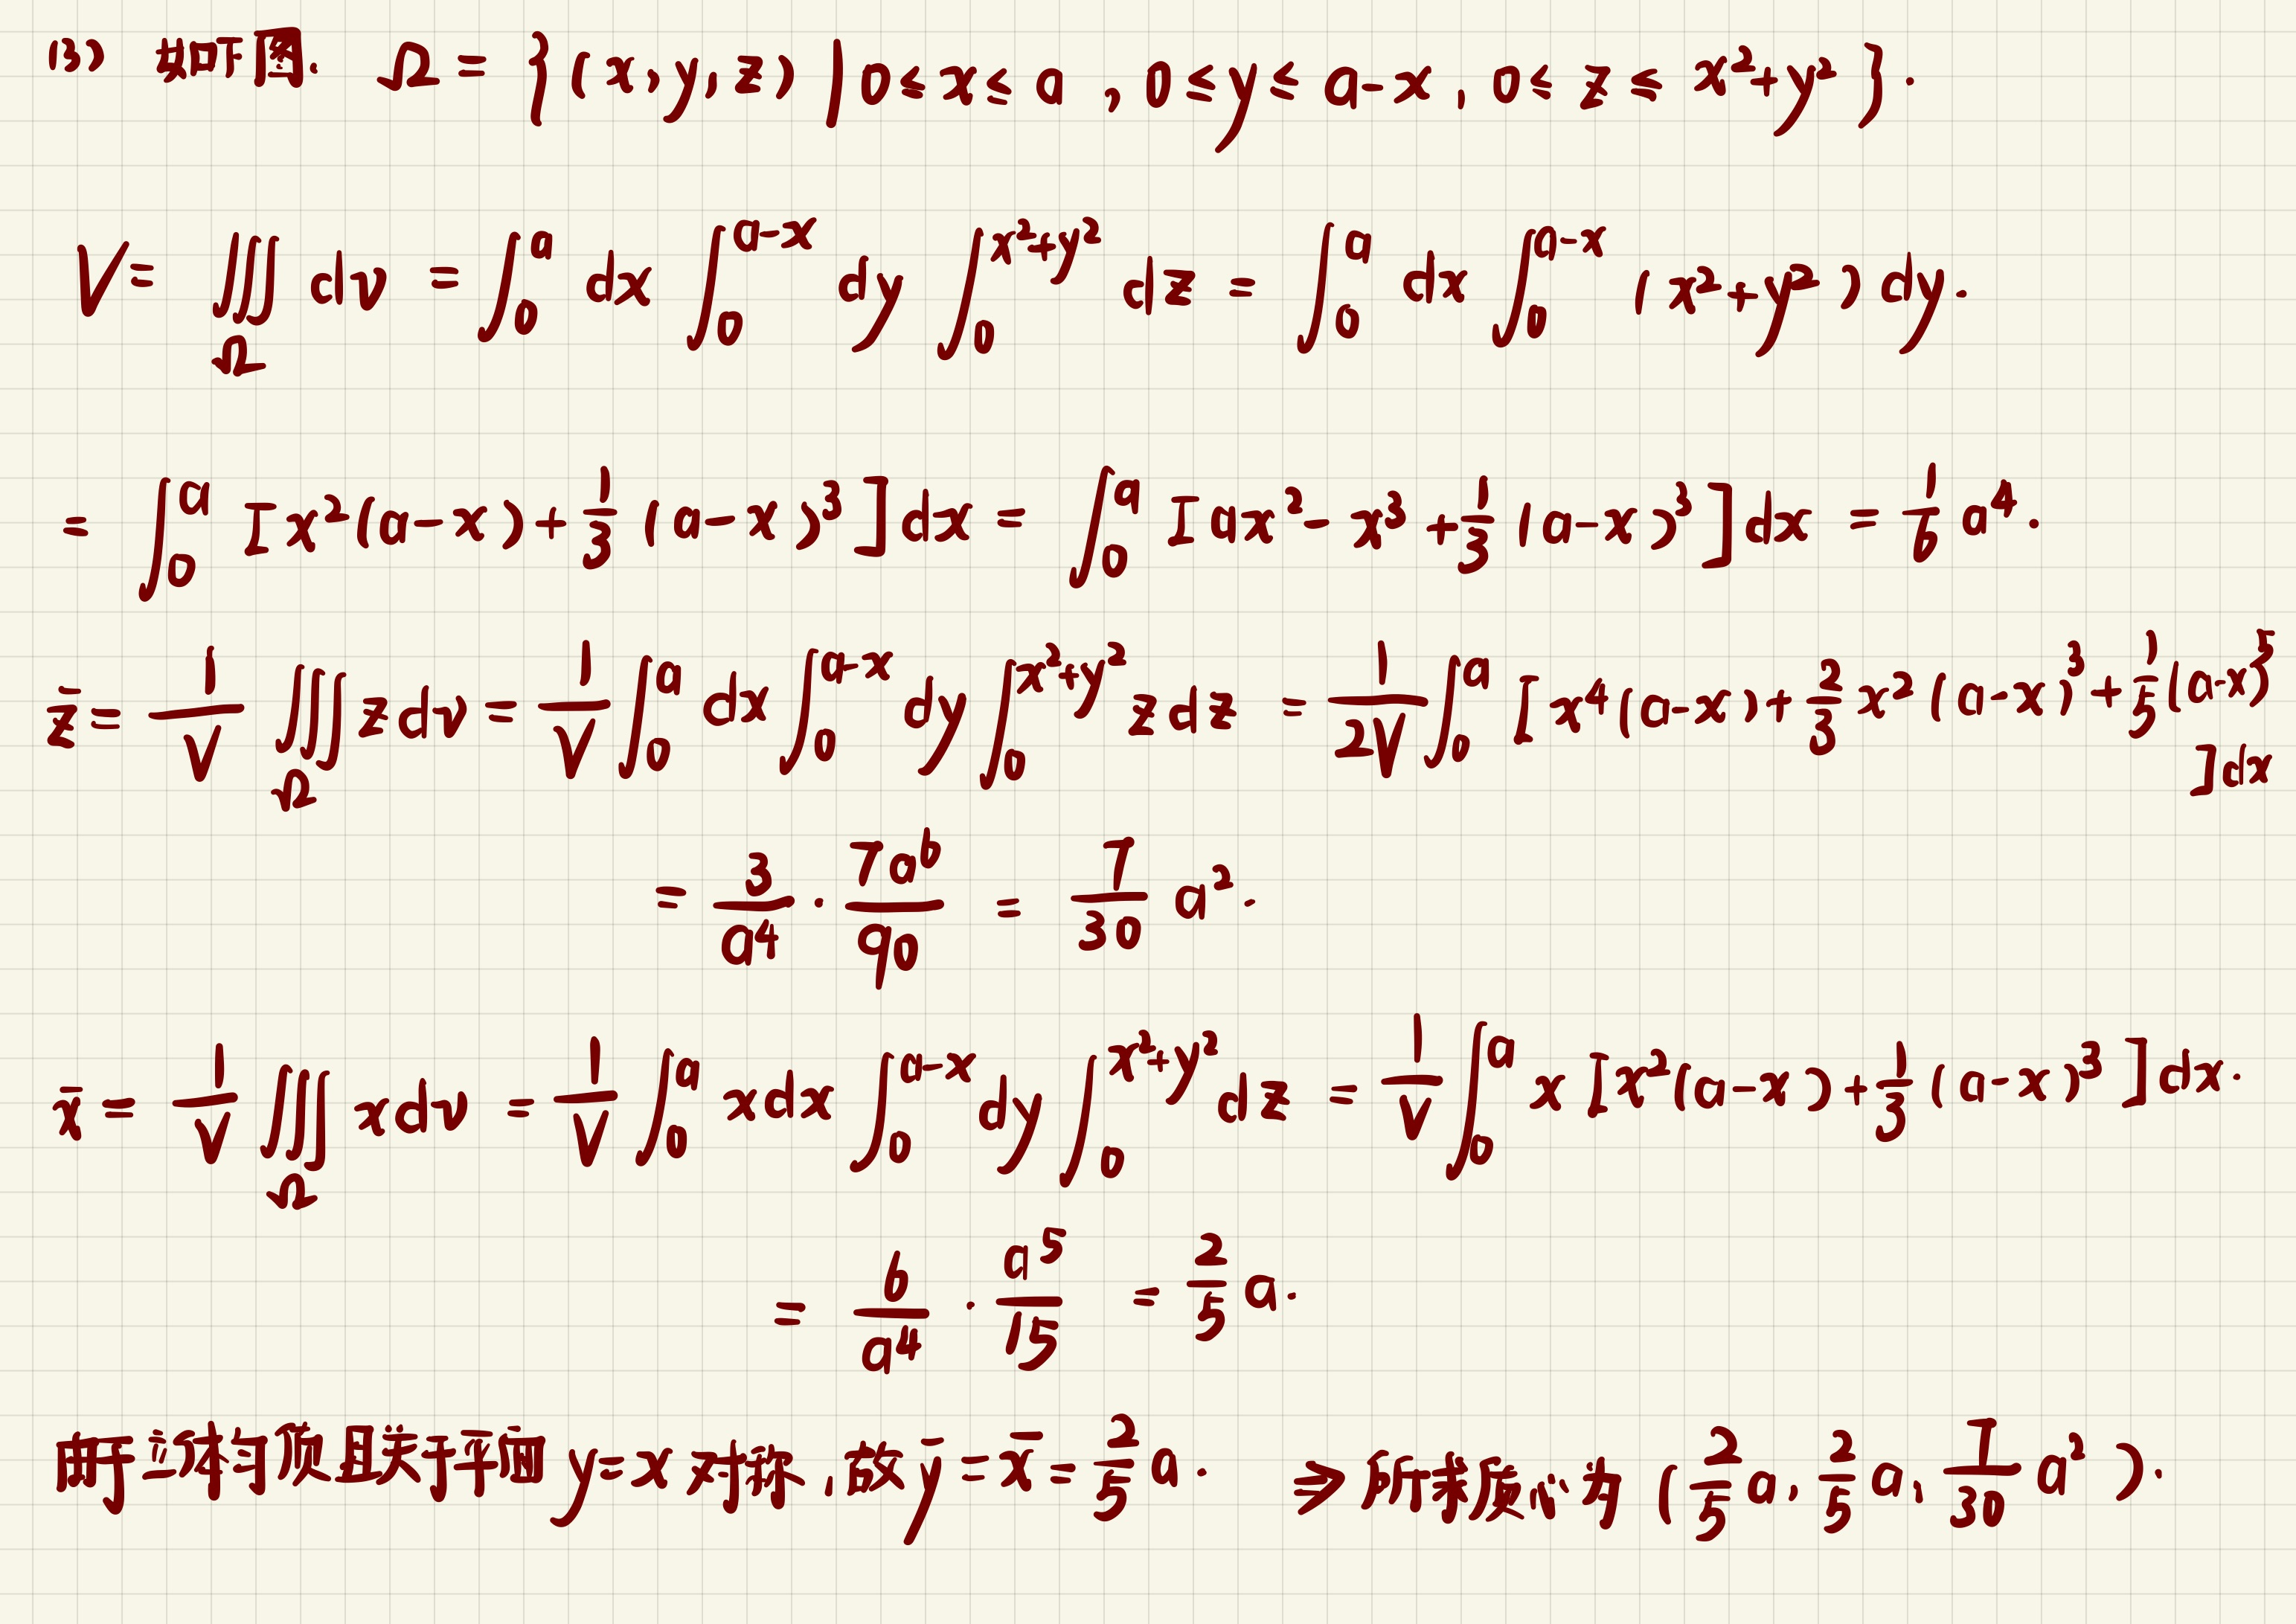 (3) 如下图. Ω = { (x, y, z) | 0 ≤ x ≤ a , 0 ≤ y ≤ a-x , 0 ≤ z ≤ x²+y² } .
V = ∭_Ω dv = ∫_0^a dx ∫_0^{a-x} dy ∫_0^{x²+y²} dz = ∫_0^a dx ∫_0^{a-x} (x²+y²) dy.
= ∫_0^a [x²(a-x) + 1/3 (a-x)³] dx = ∫_0^a [ax² - x³ + 1/3 (a-x)³] dx = 1/6 a⁴.
z̄ = 1/V ∭_Ω z dv = 1/V ∫_0^a dx ∫_0^{a-x} dy ∫_0^{x²+y²} z dz = 1/(2V) ∫_0^a [x⁴(a-x) + 2/3 x² (a-x)³ + 1/5 (a-x)⁵] dx
= 3/a⁴ · 7a⁶/90 = 7/30 a².
x̄ = 1/V ∭_Ω x dv = 1/V ∫_0^a x dx ∫_0^{a-x} dy ∫_0^{x²+y²} dz = 1/V ∫_0^a x [x²(a-x) + 1/3 (a-x)³] dx.
= 6/a⁴ · a⁵/15 = 2/5 a.
由于立体均质且关于平面 y=x 对称, 故 ȳ = x̄ = 2/5 a. ⇒ 所求质心为 (2/5 a, 2/5 a, 7/30 a²).